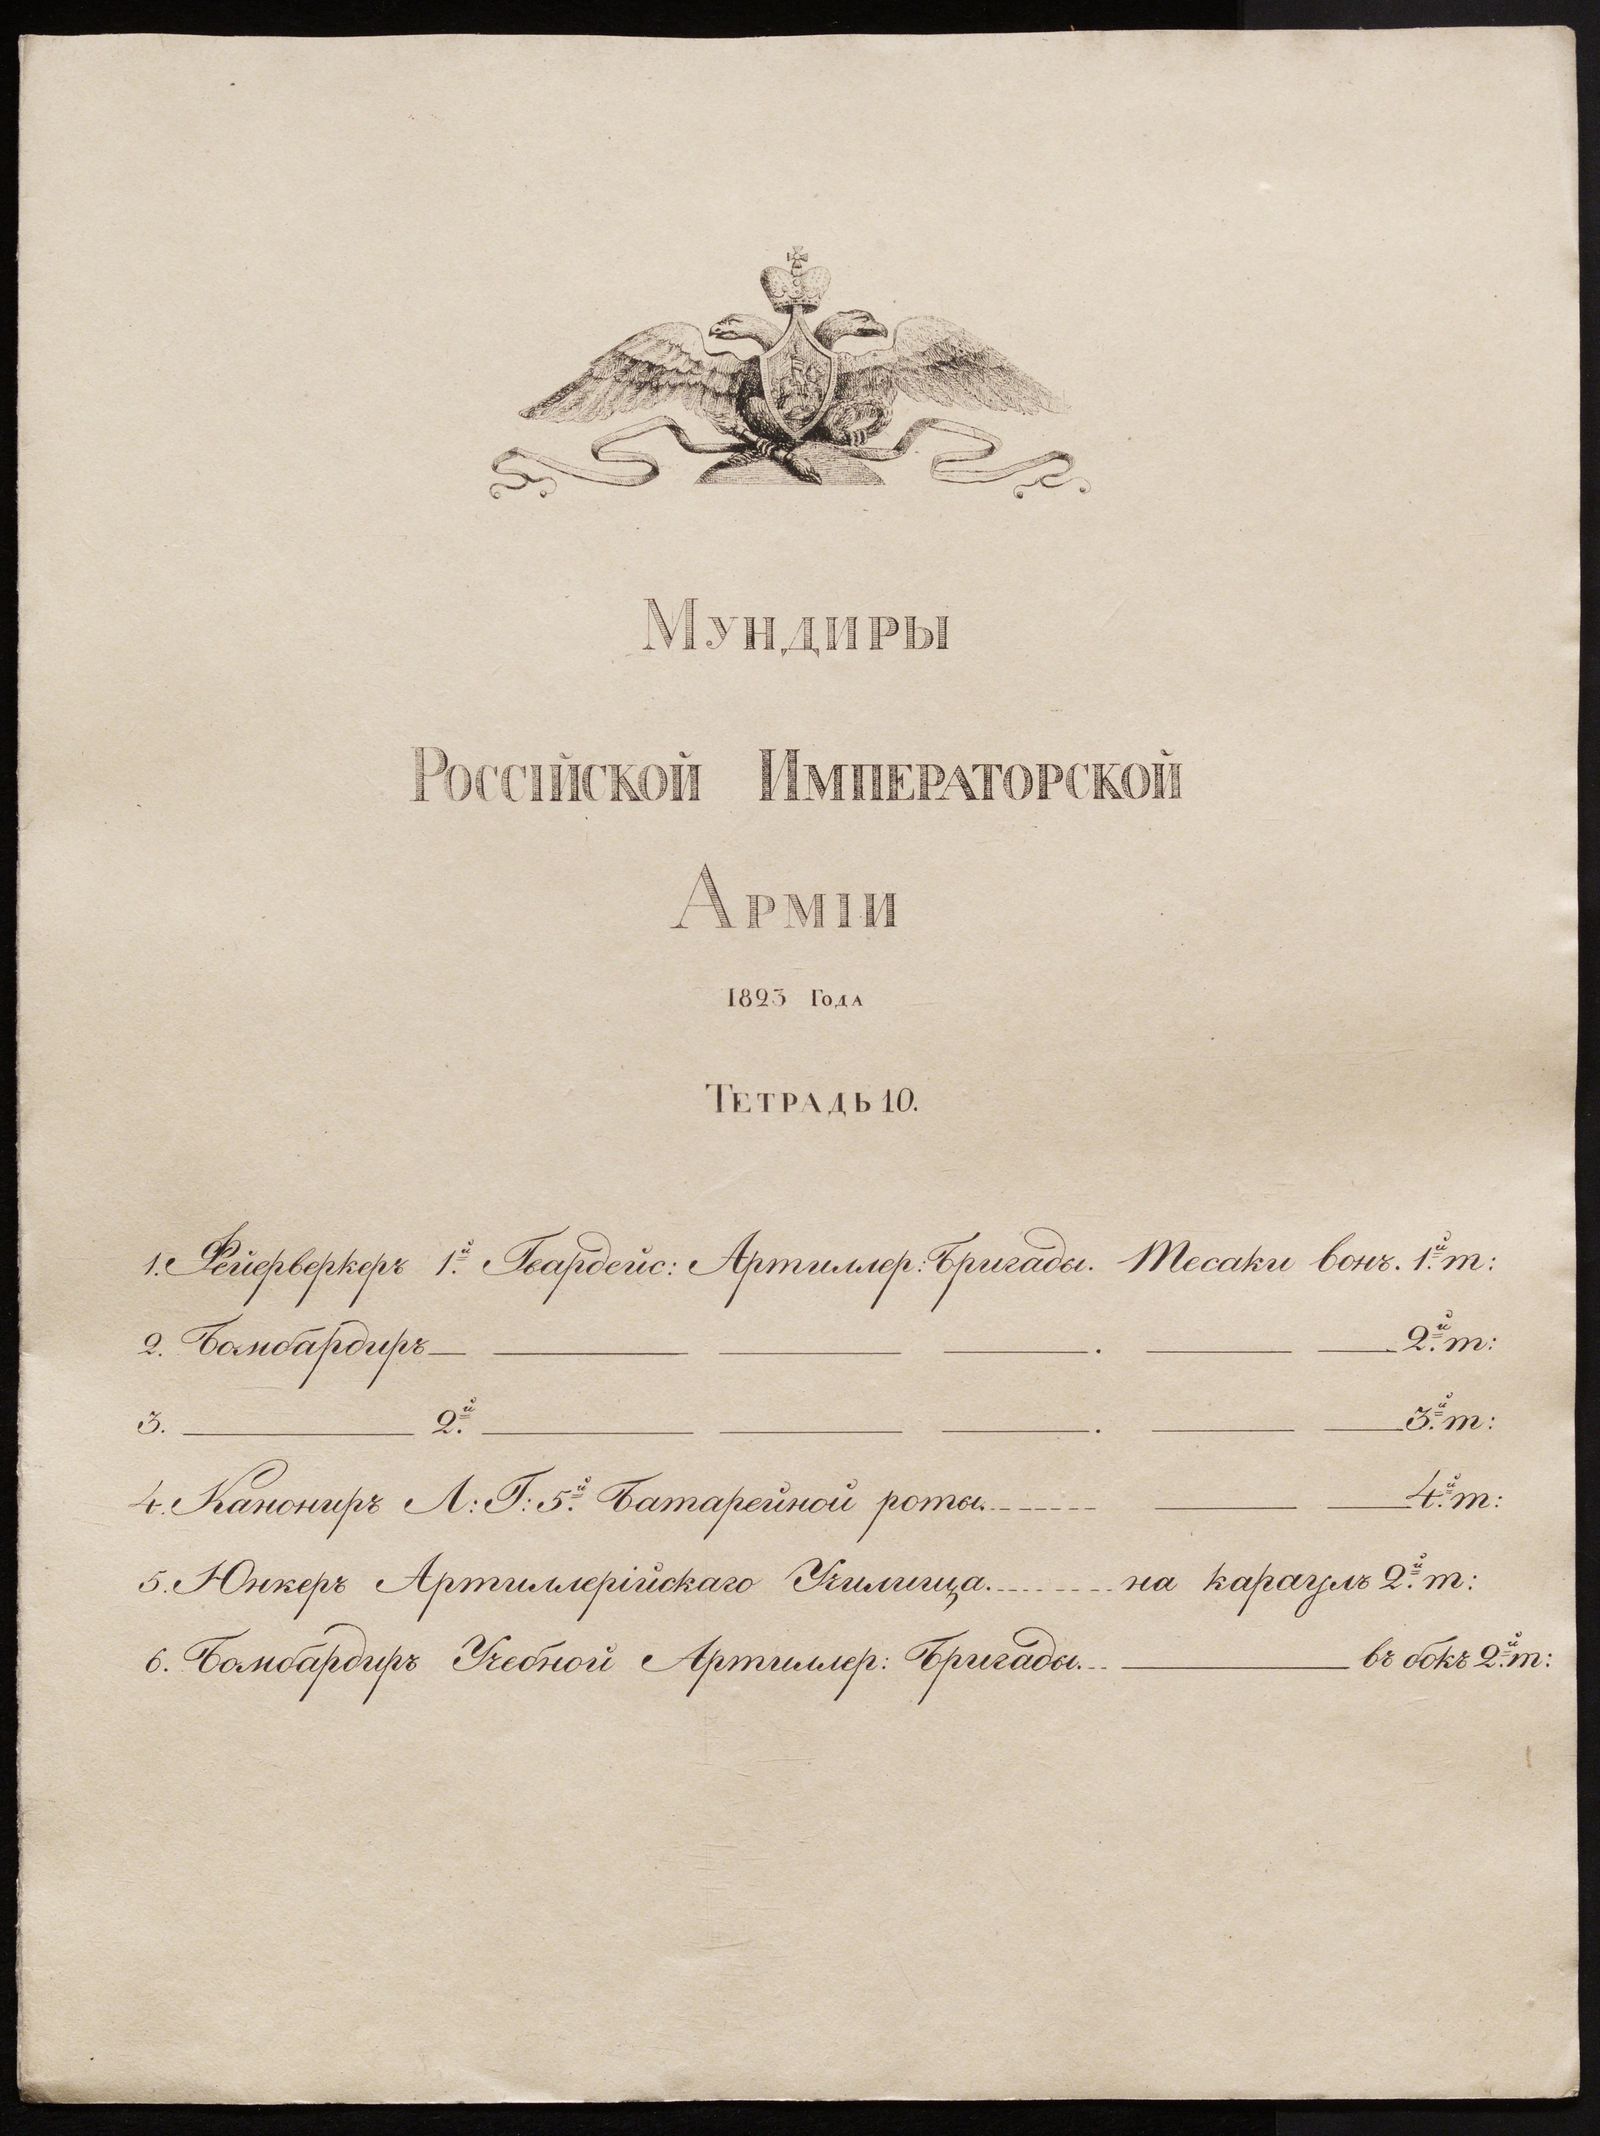 Мундиры
Россійской Императорской
Арміи
1823 Года
Тетрадь 10.
1. Фейерверкеръ 1.й Гвардейс: Артиллер: Бригады. Тесаки вонъ. 1.й т:
2. Бомбардиръ — — — — . — — 2.й т:
3. — 2.й — — — . — — 3.й т:
4. Канониръ Л: Г: 5.й Батарейной роты........ — — 4.й т:
5. Юнкеръ Артиллерійскаго Училища......... на караулъ 2.й т:
6. Бомбардиръ Учебной Артиллер: Бригады... — въ бокъ 2.й т: